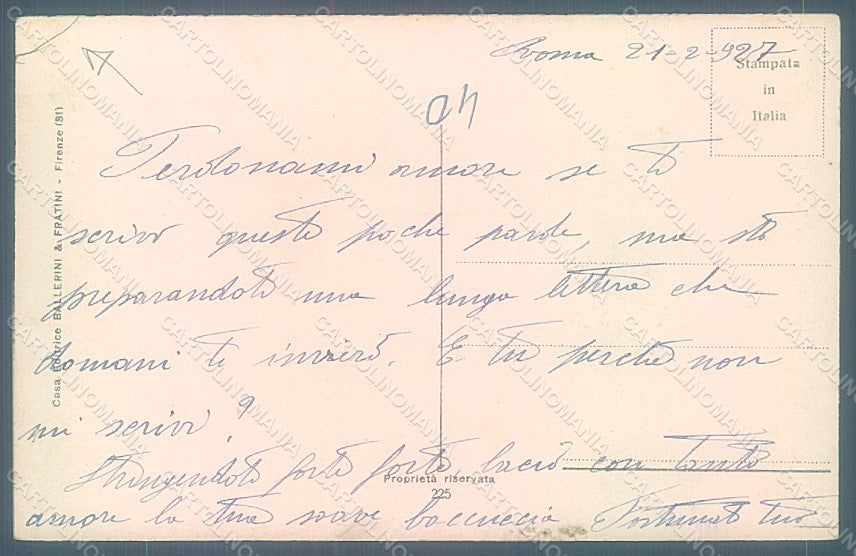 Roma 21-2-927
Stampata
in
Italia
04
Perdonami amore se ti
scrivo queste poche parole, ma sto
preparandoti una lunga lettera che
domani ti invierò. E tu perchè non
mi scrivi?
Stringendoti forte forte, bacio con tanto
amore la tua soave boccuccia Fortunato tuo
Casa Editrice BALLERINI & FRATINI - Firenze (81)
Proprietà riservata
225
CARTOLINOMANIA